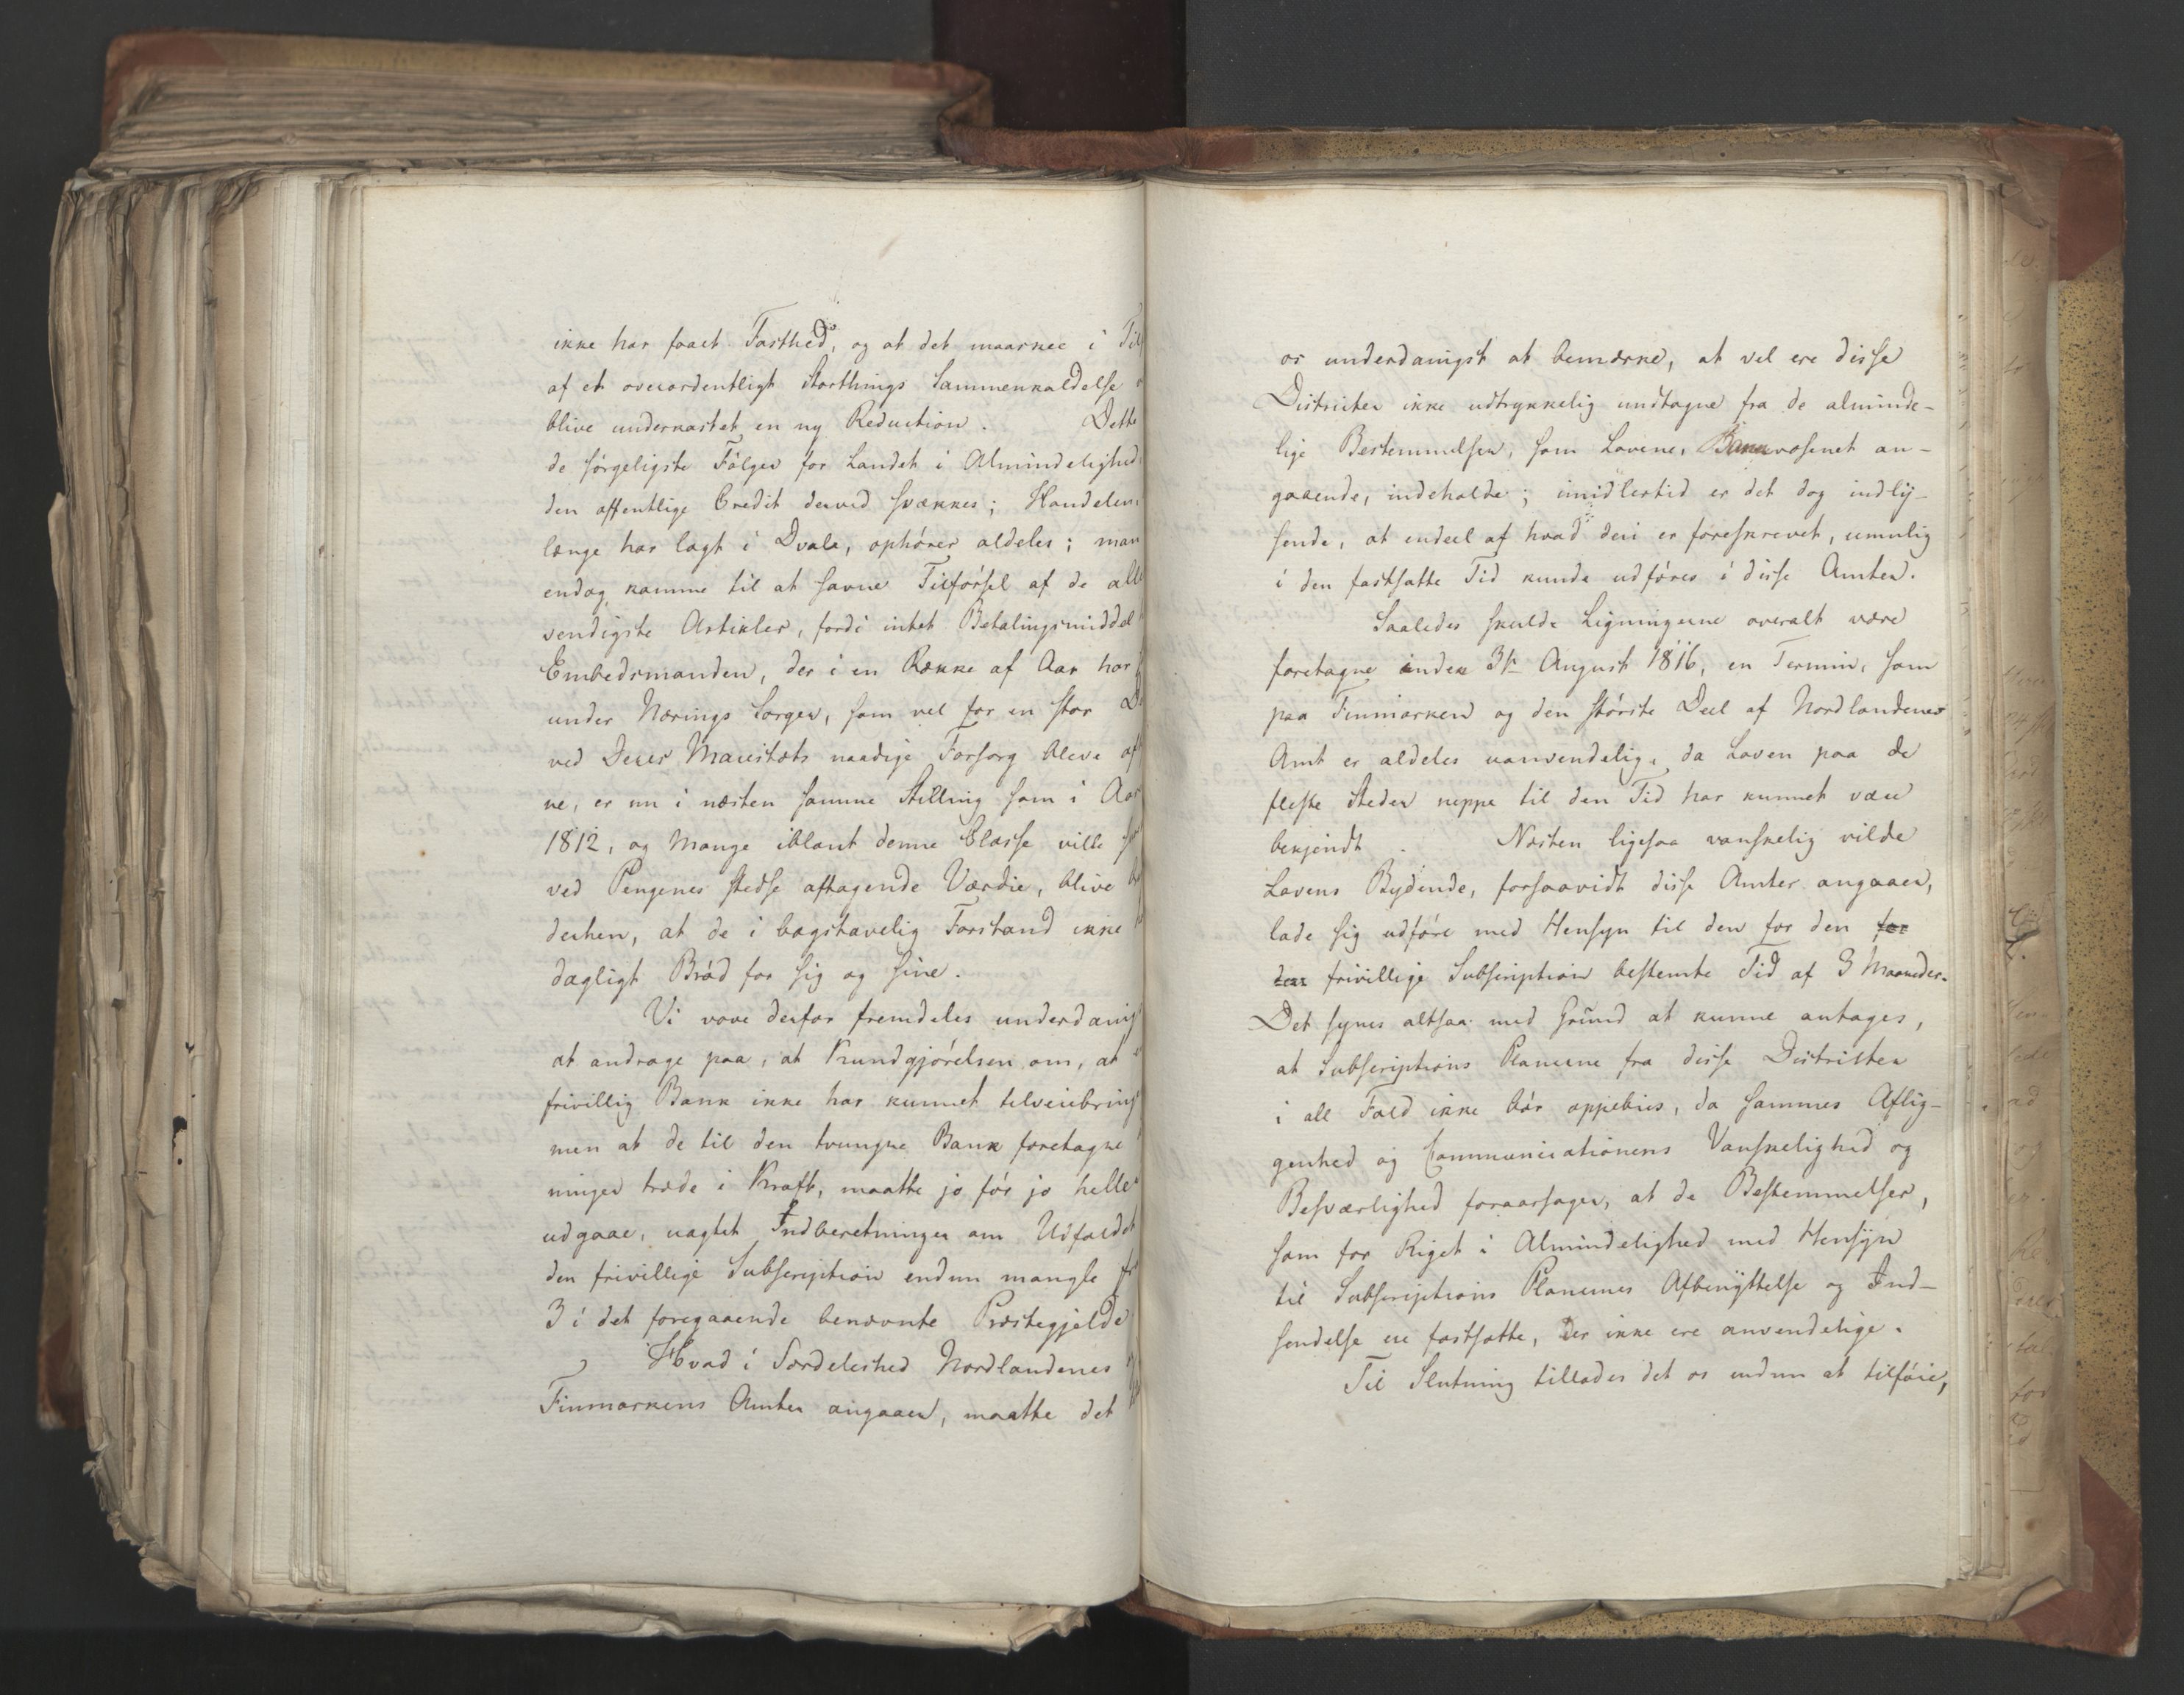 ikke har faaet Fasthed, og at det maaskee i
af et overordentligt Storthings Sammenkaldelse
blive underkastet en ny Reduction. Dette
de sørgeligste Følger for Landet i Almindelighed
den offentlige Credit derved svækkes; Handelen
længe har lagt i Dvale, ophører aldeles; man
endog komme til at savne Tilførsel af de
vendigste Artikler, fordi intet Betalingsmiddel
Embedsmanden, der i en Række af Aar har
under Nærings Sorger, som vel for en stor
ved Deres Majestæts naadige Forsorg bleve
ne, er nu i næsten samme Stilling som i Aar
1812, og Mange iblant denne Classe ville
ved Pengenes stedse aftagende Værdie, blive
derhen, at de i bogstavelig Forstand ikke
dagligt Brød for sig og sine.
Vi vove derfor fremdeles underdanig
at andrage paa, at Kundgjørelsen om, at
frivillig Bank ikke har kunnet tilveiebring
men at de til den tvungne Bank foretagne
ninger træde i Kraft, maatte jo før jo heller
udgaae, uagtet Indberetninger om Udfaldet
den frivillige Subscription endnu mangle
3 i det foregaaende benævnte Præstegjelde
Hvad i Særdeleshed Nordlandenes
Finmarkens Amter angaaer, maatte det
os underdanigst at bemærke, at vel ere disse
Districter ikke udtrykkelig undtagne fra de alminde-
lige Bestemmelser, som Lovene, Bankvæsenet an-
gaaende, indeholde; imidlertid er det dog indly-
sende, at endeel af hvad deri er foreskrevet, umulig
i den fastsatte Tid kunde udføres i disse Amter.
Saaledes skulde Ligningerne overalt være
foretagne inden August 1816, en Termin, som
paa Finmarken og den største Deel af Nordlandenes
Amt er aldeles uanvendelig, da Loven paa de
fleste Steder neppe til den Tid har kunnet være
bekjendt. Næsten ligesaa vanskelig vilde
Lovens Bydende, forsaavidt disse Amter angaaer,
lade sig udføre med Hensyn til den for den for
den frivillige Subscription bestemte Tid af 3 Maaneder.
Det synes altsaa med Grund at kunne antages,
at Subscriptions Planerne fra disse Districter
i all Fald ikke bør oppebies, da sammes Aflig-
genhed og Communicationens Vanskelighed og
Besværlighed foraarsager, at de Bestemmelser,
som for Riget i Almindelighed med Hensyn
til Subscriptions Planernes Afbenyttelse og Ind-
sendelse ere fastsatte, Der ikke ere anvendelige.
Til Slutning tillades det os endnu at tilføie,